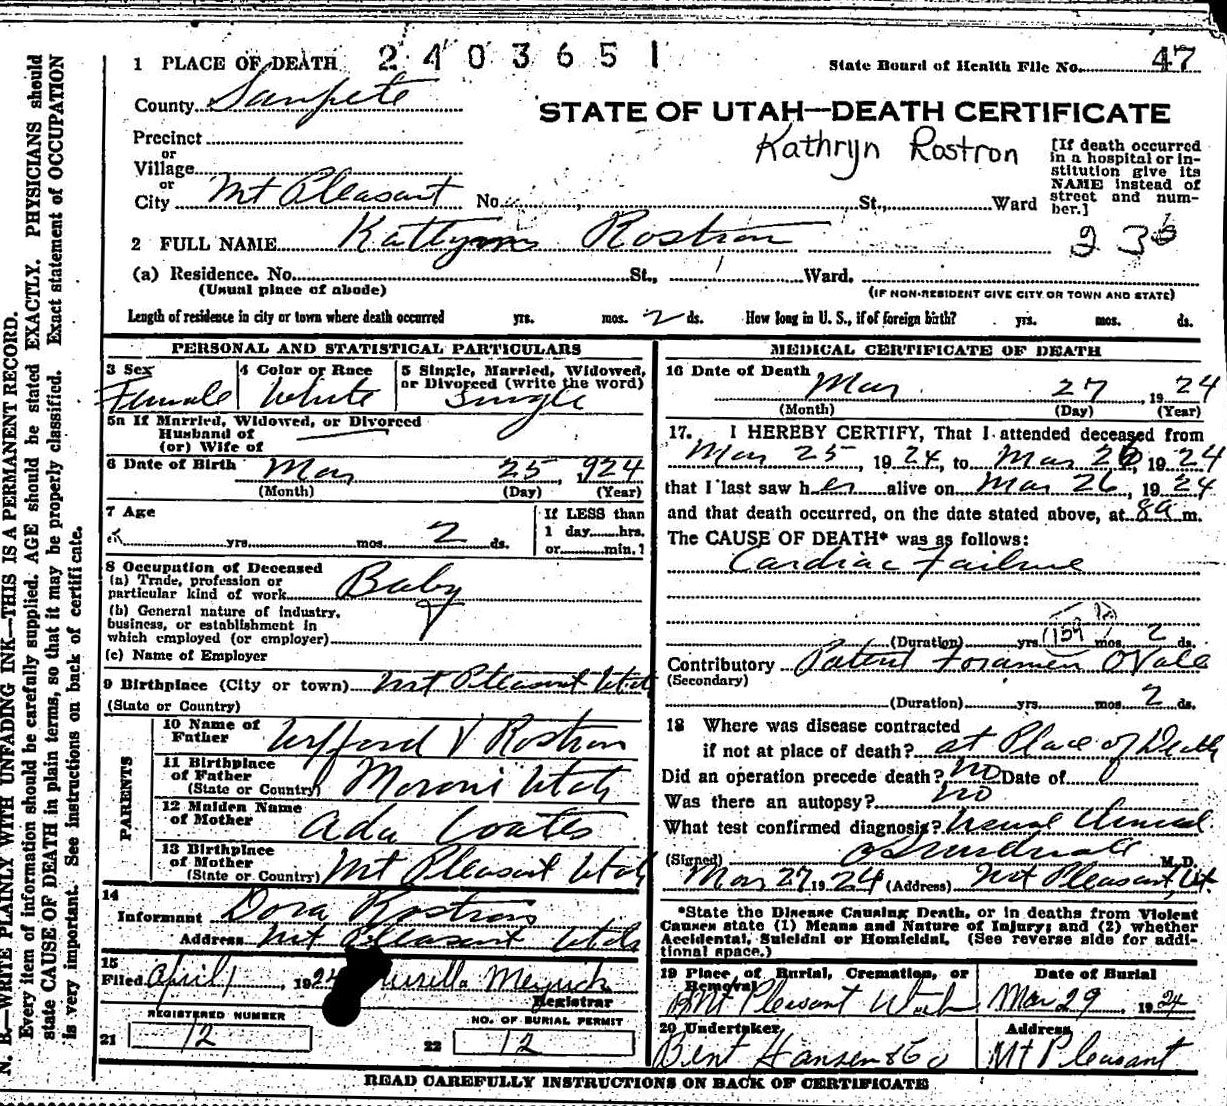 1 PLACE OF DEATH 2403651
State Board of Health File No. 47
County Sanpete
STATE OF UTAH—DEATH CERTIFICATE
Precinct
or
Village
or
City Mt Pleasant No. St., Ward
Kathryn Rostron
[If death occurred
in a hospital or in-
stitution give its
NAME instead of
street and num-
ber.]
2 FULL NAME Rostron
(a) Residence. No. St., Ward.
(Usual place of abode)
(IF NON-RESIDENT GIVE CITY OR TOWN AND STATE)
Length of residence in city or town where death occurred yrs. mos. 2 ds. How long in U. S., if of foreign birth? yrs. mos. ds.
PERSONAL AND STATISTICAL PARTICULARS
3 Sex
Female
4 Color or Race
White
5 Single, Married, Widowed,
or Divorced (write the word)
Single
5a If Married, Widowed, or Divorced
Husband of
(or) Wife of
6 Date of Birth Mar 25, 924
(Month) (Day) (Year)
7 Age
yrs. mos. 2 ds.
If LESS than
1 day hrs.
or min.?
8 Occupation of Deceased
(a) Trade, profession or
particular kind of work Baby
(b) General nature of industry,
business, or establishment in
which employed (or employer)
(c) Name of Employer
9 Birthplace (City or town) Mt Pleasant Utah
(State or Country)
PARENTS
10 Name of
Father V Rostron
11 Birthplace
of Father
(State or Country) Moroni Utah
12 Maiden Name
of Mother Ada Coates
13 Birthplace
of Mother
(State or Country) Mt Pleasant Utah
14
Informant Dora Rostron
Address Mt Pleasant Utah
15
Filed April 1, 1924
Registrar
REGISTERED NUMBER
21 12
NO. OF BURIAL PERMIT
22 12
MEDICAL CERTIFICATE OF DEATH
16 Date of Death
Mar 27, 1924
(Month) (Day) (Year)
17. I HEREBY CERTIFY, That I attended deceased from
Mar 25, 1924, to Mar 26, 1924
that I last saw her alive on Mar 26, 1924
and that death occurred, on the date stated above, at 8a m.
The CAUSE OF DEATH* was as follows:
Cardiac Failure
(Duration) yrs. 159 mos. 2 ds.
Contributory Patent Foramen Ovale
(Secondary)
(Duration) yrs. mos. 2 ds.
18 Where was disease contracted
if not at place of death? at Place of Death
Did an operation precede death? no Date of
Was there an autopsy? no
What test confirmed diagnosis? Usual Clinical
(Signed) M. D.
Mar 27, 1924 (Address) Mt Pleasant, Ut.
*State the Disease Causing Death, or in deaths from Violent
Causes state (1) Means and Nature of Injury; and (2) whether
Accidental, Suicidal or Homicidal. (See reverse side for addi-
tional space.)
19 Place of Burial, Cremation, or
Removal
Mt Pleasant Utah
Date of Burial
Mar 29, 1924
20 Undertaker
Bent Hansen & Co
Address
Mt Pleasant
READ CAREFULLY INSTRUCTIONS ON BACK OF CERTIFICATE
N. B.—WRITE PLAINLY WITH UNFADING INK—THIS IS A PERMANENT RECORD.
Every item of information should be carefully supplied. AGE should be stated EXACTLY. PHYSICIANS should
state CAUSE OF DEATH in plain terms, so that it may be properly classified. Exact statement of OCCUPATION
is very important. See instructions on back of certificate.